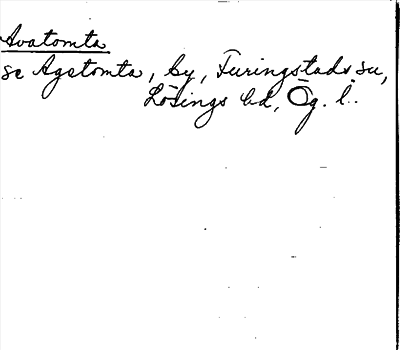 Avatomta
se Agetomta, by, Furingstads su,
Lösings hd, Ög. l.